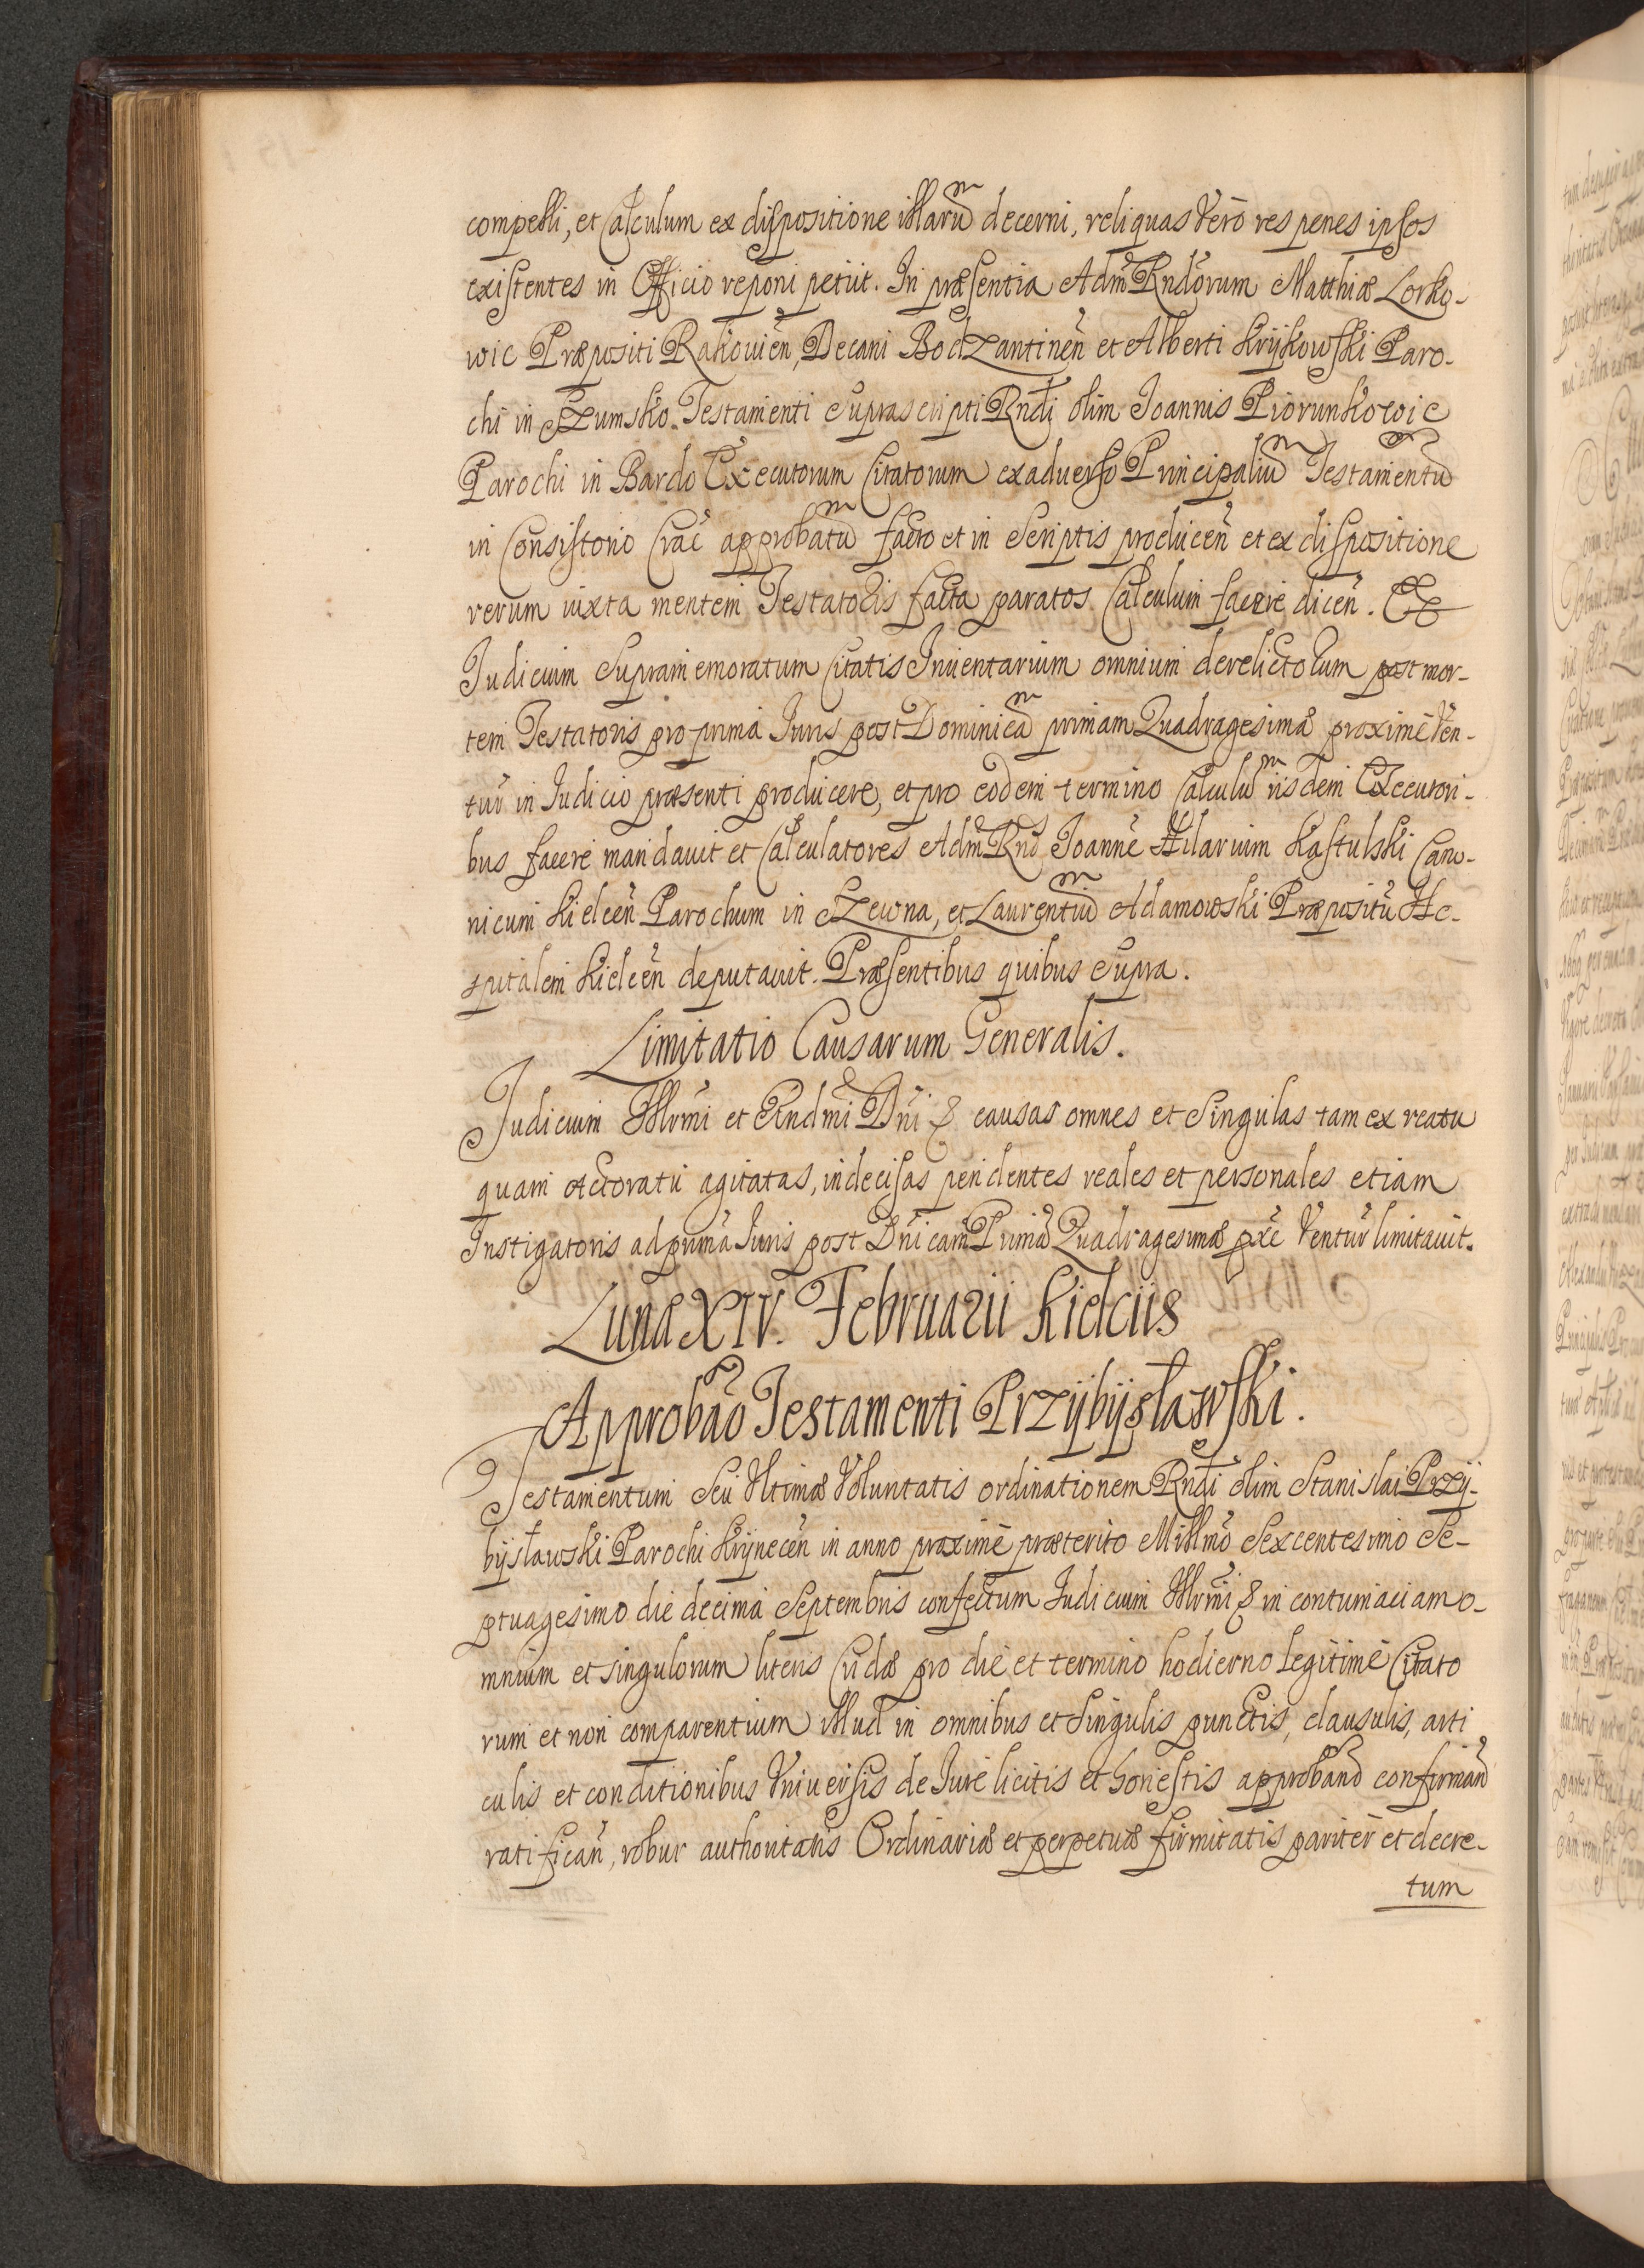 compelli, et Calculum ex dispositione illarum decerni, reliquas vero res penes ipsos
existentes in Officio reponi petiit. In præsentia Adm Rndorum Matthiæ Lorko-
wic Præpositi Rakovien, Decani Bodzantinen et Alberti Krykowski Paro-
chi in Szumsko. Testamenti suprascripti Rndi olim Joannis Piorunkowic
Parochi in Bardo Executorum Citatorum ex adverso Principalium Testamentum
in Consistorio Crac approbatum facto et in Scriptis producen et ex dispositione
rerum iuxta mentem Testatoris facta paratos Calculum facere dicen. Et
Judicium Supramemoratum Citatis Inventarium omnium derelictorum post mor-
tem Testatoris pro prima Juris post Dominicam primam Quadragesimæ proximè ven-
tur in Judicio præsenti producere, et pro eodem termino Calculum iisdem Executori-
bus facere mandavit et Calculatores Adm Rnd Joanne Hilarium Kastulski Cano-
nicum Kielcen Parochum in Szewna, et Laurentium Adamowski Præpositu Ho-
spitalem Kielcen deputavit. Præsentibus quibus supra.
Limitatio Causarum Generalis.
Judicium Illrmi et Rndmi Dni & causas omnes et Singulas tam ex reatu
quam actoratu agitatas, indecisas pendentes reales et personales etiam
Instigatoris ad prima Juris post Dnicam Prima Quadragesimæ pxe Ventur limitavit.
Luna XIV. Februarii Kielciis
Approbao Testamenti Przybysławski.
Testamentum seu Ultimæ Voluntatis ordinationem Rndi olim Stanislai Przy-
bysławski Parochi Krynecen in anno proximè præterito Millmo Sexcentesimo Se-
ptuagesimo die decima Septembris confectum Judicium Illrmi & in contumaciam o-
mnium et singulorum literis Cridæ pro die et termino hodierno legitimè Citato
rum et non comparentium illud in omnibus et Singulis punctis, clausulis, arti
culis et conditionibus Universis de Jure licitis et honestis approband confirmand
ratifican, robur authoritatis Ordinariæ et perpetuæ firmitatis pariter et decre-
tum